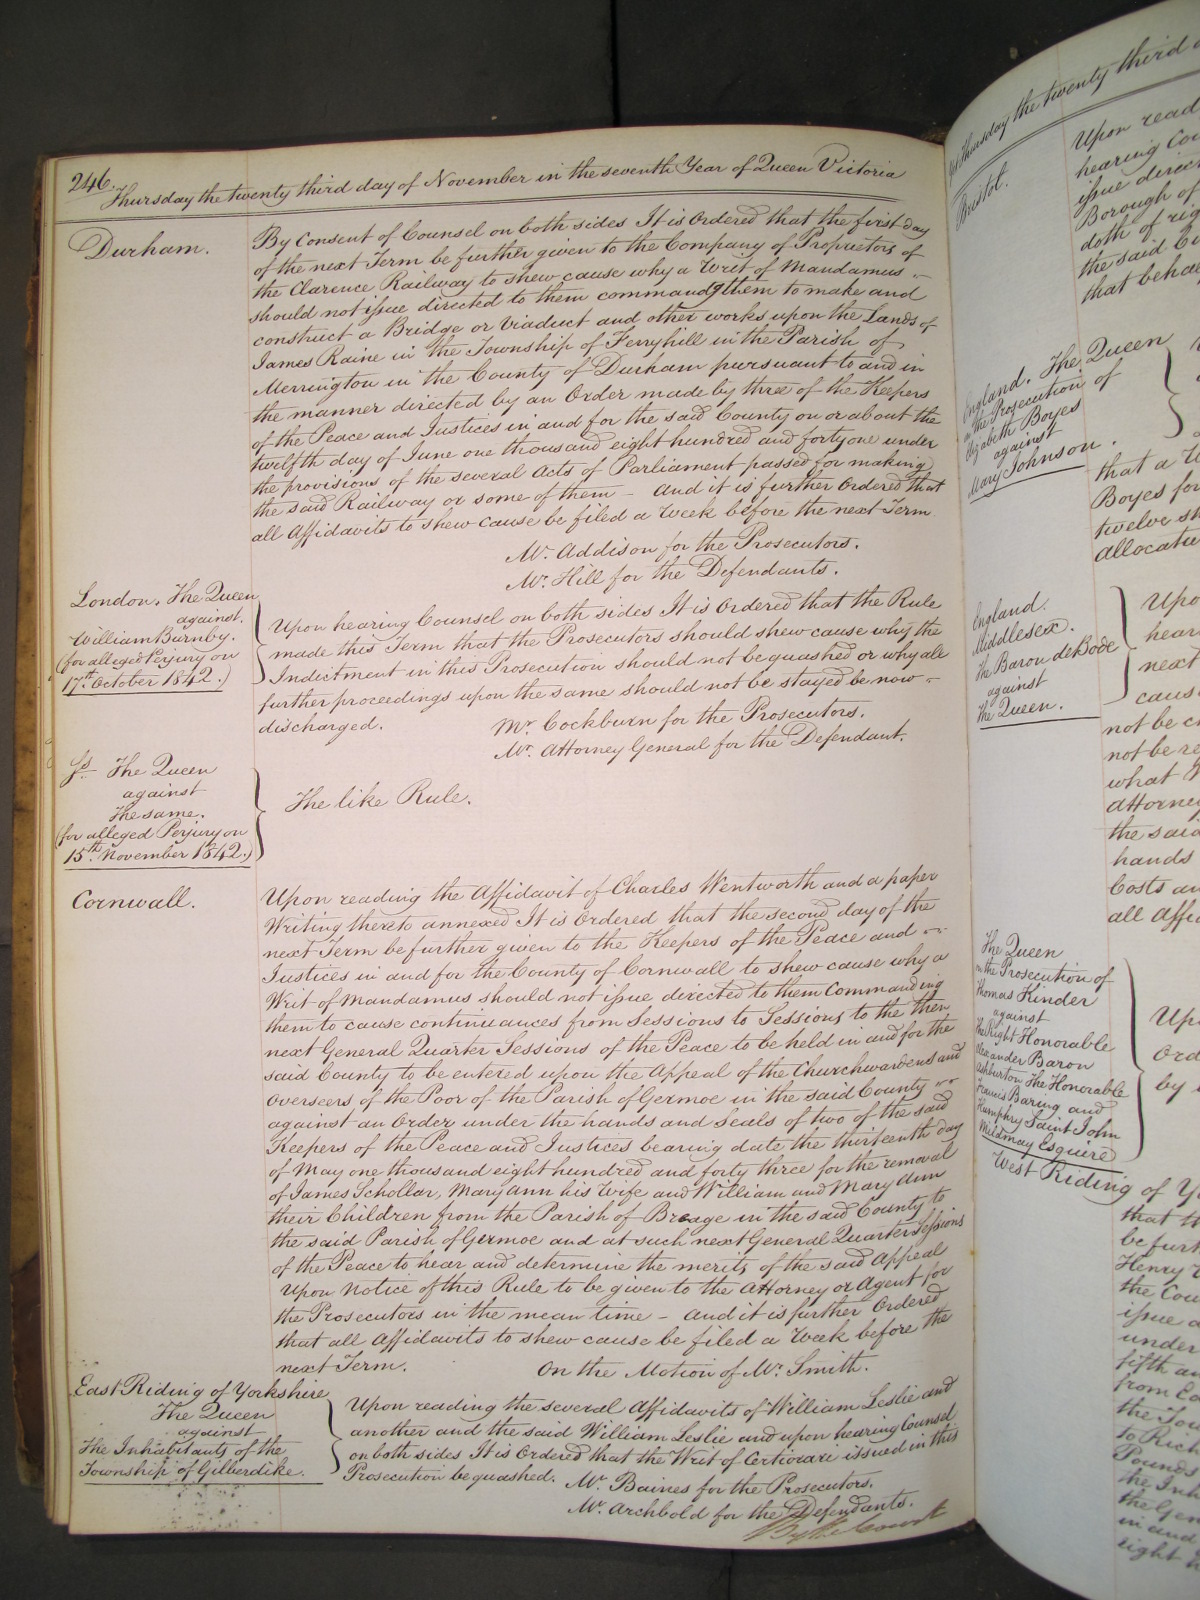 246. Thursday the twenty third day of November in the seventh Year of Queen Victoria
Durham.
By Consent of Counsel on both sides It is Ordered that the first day
of the next Term be further given to the Company of Proprietors of
the Clarence Railway to shew cause why a Writ of Mandamus
should not issue directed to them commandg them to make and
construct a Bridge or Viaduct and other works upon the Lands of
James Raine in the Township of Ferryhill in the Parish of
Merrington in the County of Durham pursuant to and in
the manner directed by an Order made by three of the Keepers
of the Peace and Justices in and for the said County on or about the
twelfth day of June one thousand eight hundred and forty one under
the provisions of the several Acts of Parliament passed for making
the said Railway or some of them – And it is further Ordered that
all Affidavits to shew cause be filed a Week before the next Term
Mr. Addison for the Prosecutors.
Mr. Hill for the Defendants.
London. The Queen
against
William Burnby.
(for alleged Perjury on
17th October 1842.)
Upon hearing Counsel on both sides It is Ordered that the Rule
made this Term that the Prosecutors should shew cause why the
Indictment in this Prosecution should not be quashed or why all
further proceedings upon the same should not be stayed be now
discharged.
Mr. Cockburn for the Prosecutors.
Mr. Attorney General for the Defendant.
The Queen
against
The same.
(for alleged Perjury on
15th November 1842.)
The like Rule.
Cornwall.
Upon reading the Affidavit of Charles Wentworth and a paper
Writing thereto annexed It is Ordered that the second day of the
next Term be further given to the Keepers of the Peace and
Justices in and for the County of Cornwall to shew cause why a
Writ of Mandamus should not issue directed to them Commanding
them to cause continuances from Sessions to Sessions to the then
next General Quarter Sessions of the Peace to be held in and for the
said County to be entered upon the Appeal of the Churchwardens and
Overseers of the Poor of the Parish of Germoe in the said County
against an Order under the hands and Seals of two of the said
Keepers of the Peace and Justices bearing date the thirteenth day
of May one thousand eight hundred and forty three for the removal
of James Schollar, Mary Ann his Wife and William and Mary Ann
their Children from the Parish of Breage in the said County to
the said Parish of Germoe and at such next General Quarter Sessions
of the Peace to hear and determine the merits of the said Appeal
Upon Notice of this Rule to be given to the Attorney or Agent for
the Prosecutors in the mean time – And it is further Ordered
that all Affidavits to shew cause be filed a Week before the
next Term.
On the Motion of Mr. Smith.
East Riding of Yorkshire
The Queen
against
The Inhabitants of the
Township of Gilberdike.
Upon reading the several Affidavits of William Leslie and
another and the said William Leslie and upon hearing Counsel
on both sides It is Ordered that the Writ of Certiorari issued in this
Prosecution be quashed.
Mr. Baines for the Prosecutors.
Mr. Archbold for the Defendants.
By the Court
Thursday the twenty third
Bristol.
Upon read
hearing Cou
issue direc
Borough of
doth of rig
the said
that beha
England. The Queen
on the Prosecution of
Elizabeth Boyes
against
Mary Johnson.
that a
Boyes for
twelve sh
allocatu
England.
Middlesex.
The Baron de Bode
against
The Queen.
Upo
hear
next
cause
not be c
not be re
what
Attorney
the said
hands
Costs an
all Affi
The Queen
on the Prosecution of
Thomas Kinder
against
The Right Honorable
Alexander Baron
Ashburton The Honorable
Francis Baring and
Humphry Saint John
Mildmay Esquire
Up
Ord
by
West Riding of Y
that th
be furt
Henry
the Cou
issue
under
fifth an
from
the Tow
to Rich
Pounds
the Inh
the Gen
in and
eight h